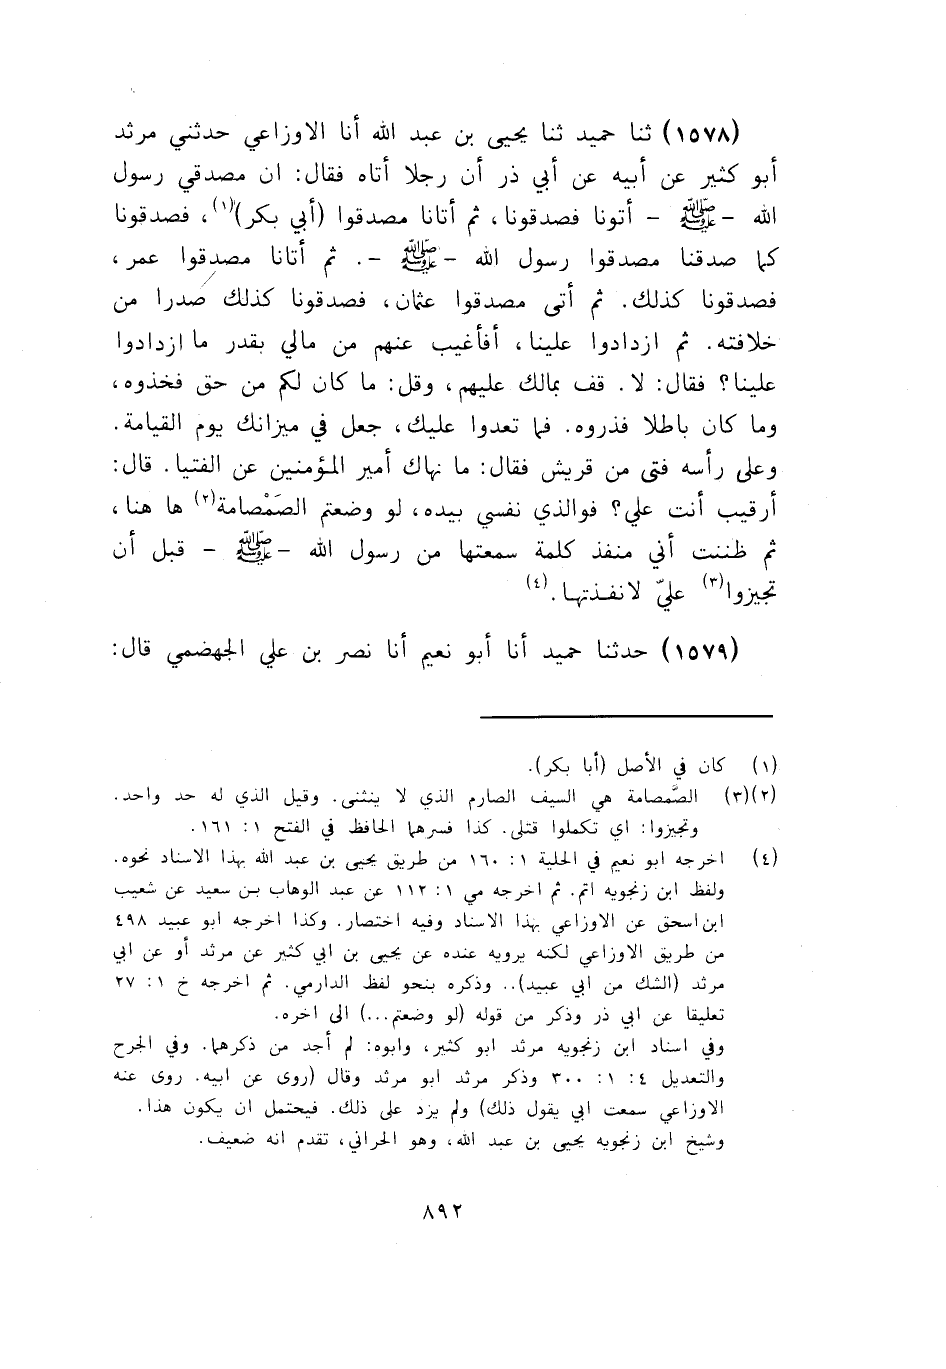 (١٥٧٨) ثنا حميد ثنا يحيى بن عبد الله أنا الاوزاعي حدثني مرثد
أبو كثير عن أبيه عن أبي ذر أن رجلا أتاه فقال: ان مصدقي رسول
الله - ﷺ - أتونا فصدقونا، ثم أتانا مصدقوا (أبي بكر)(١)، فصدقونا
كما صدقنا مصدقوا رسول الله - ﷺ -. ثم أتانا مصدقوا عمر،
فصدقونا كذلك. ثم أتى مصدقوا عثمان، فصدقونا كذلك صدرا من
خلافته. ثم ازدادوا علينا، أفأغيب عنهم من مالي بقدر ما ازدادوا
علينا؟ فقال: لا. قف بمالك عليهم، وقل: ما كان لكم من حق فخذوه،
وما كان باطلا فذروه. فما تعدوا عليك، جعل في ميزانك يوم القيامة.
وعلى رأسه فتى من قريش فقال: ما نهاك أمير المؤمنين عن الفتيا. قال:
أرقيب أنت علي؟ فوالذي نفسي بيده، لو وضعتم الصَمْصامة(٢) ها هنا،
ثم ظننت أني منفذ كلمة سمعتها من رسول الله - ﷺ - قبل أن
تجيزوا(٣) عليّ لانفذتها.(٤)
(١٥٧٩) حدثنا حميد أنا أبو نعيم أنا نصر بن علي الجهضمي قال:
(١) كان في الأصل (أبا بكر).
(٢)(٣) الصَّمصامة هي السيف الصارم الذي لا ينثنى. وقيل الذي له حد واحد.
وتجيزوا: اي تكملوا قتلى. كذا فسرهما الحافظ في الفتح ١: ١٦١.
(٤) اخرجه ابو نعيم في الحلية ١: ١٦٠ من طريق يحيى بن عبد الله بهذا الاسناد نحوه.
ولفظ ابن زنجويه اتم. ثم اخرجه مي ١: ١١٢ عن عبد الوهاب بن سعيد عن شعيب
ابن اسحق عن الاوزاعي بهذا الاسناد وفيه اختصار. وكذا اخرجه ابو عبيد ٤٩٨
من طريق الاوزاعي لكنه يرويه عنده عن يحيى بن ابي كثير عن مرثد أو عن ابي
مرثد (الشك من ابي عبيد).. وذكره بنحو لفظ الدارمي. ثم اخرجه خ ١: ٢٧
تعليقا عن ابي ذر وذكر من قوله (لو وضعتم...) الى اخره.
وفي اسناد ابن زنجويه مرثد ابو كثير، وابوه: لم أجد من ذكرهما. وفي الجرح
والتعديل ٤: ١: ٣٠٠ وذكر مرثد ابو مرثد وقال (روى عن ابيه. روى عنه
الاوزاعي سمعت ابي يقول ذلك) ولم يزد على ذلك. فيحتمل ان يكون هذا.
وشيخ ابن زنجويه يحيى بن عبد الله، وهو الحراني، تقدم انه ضعيف.
٨٩٢